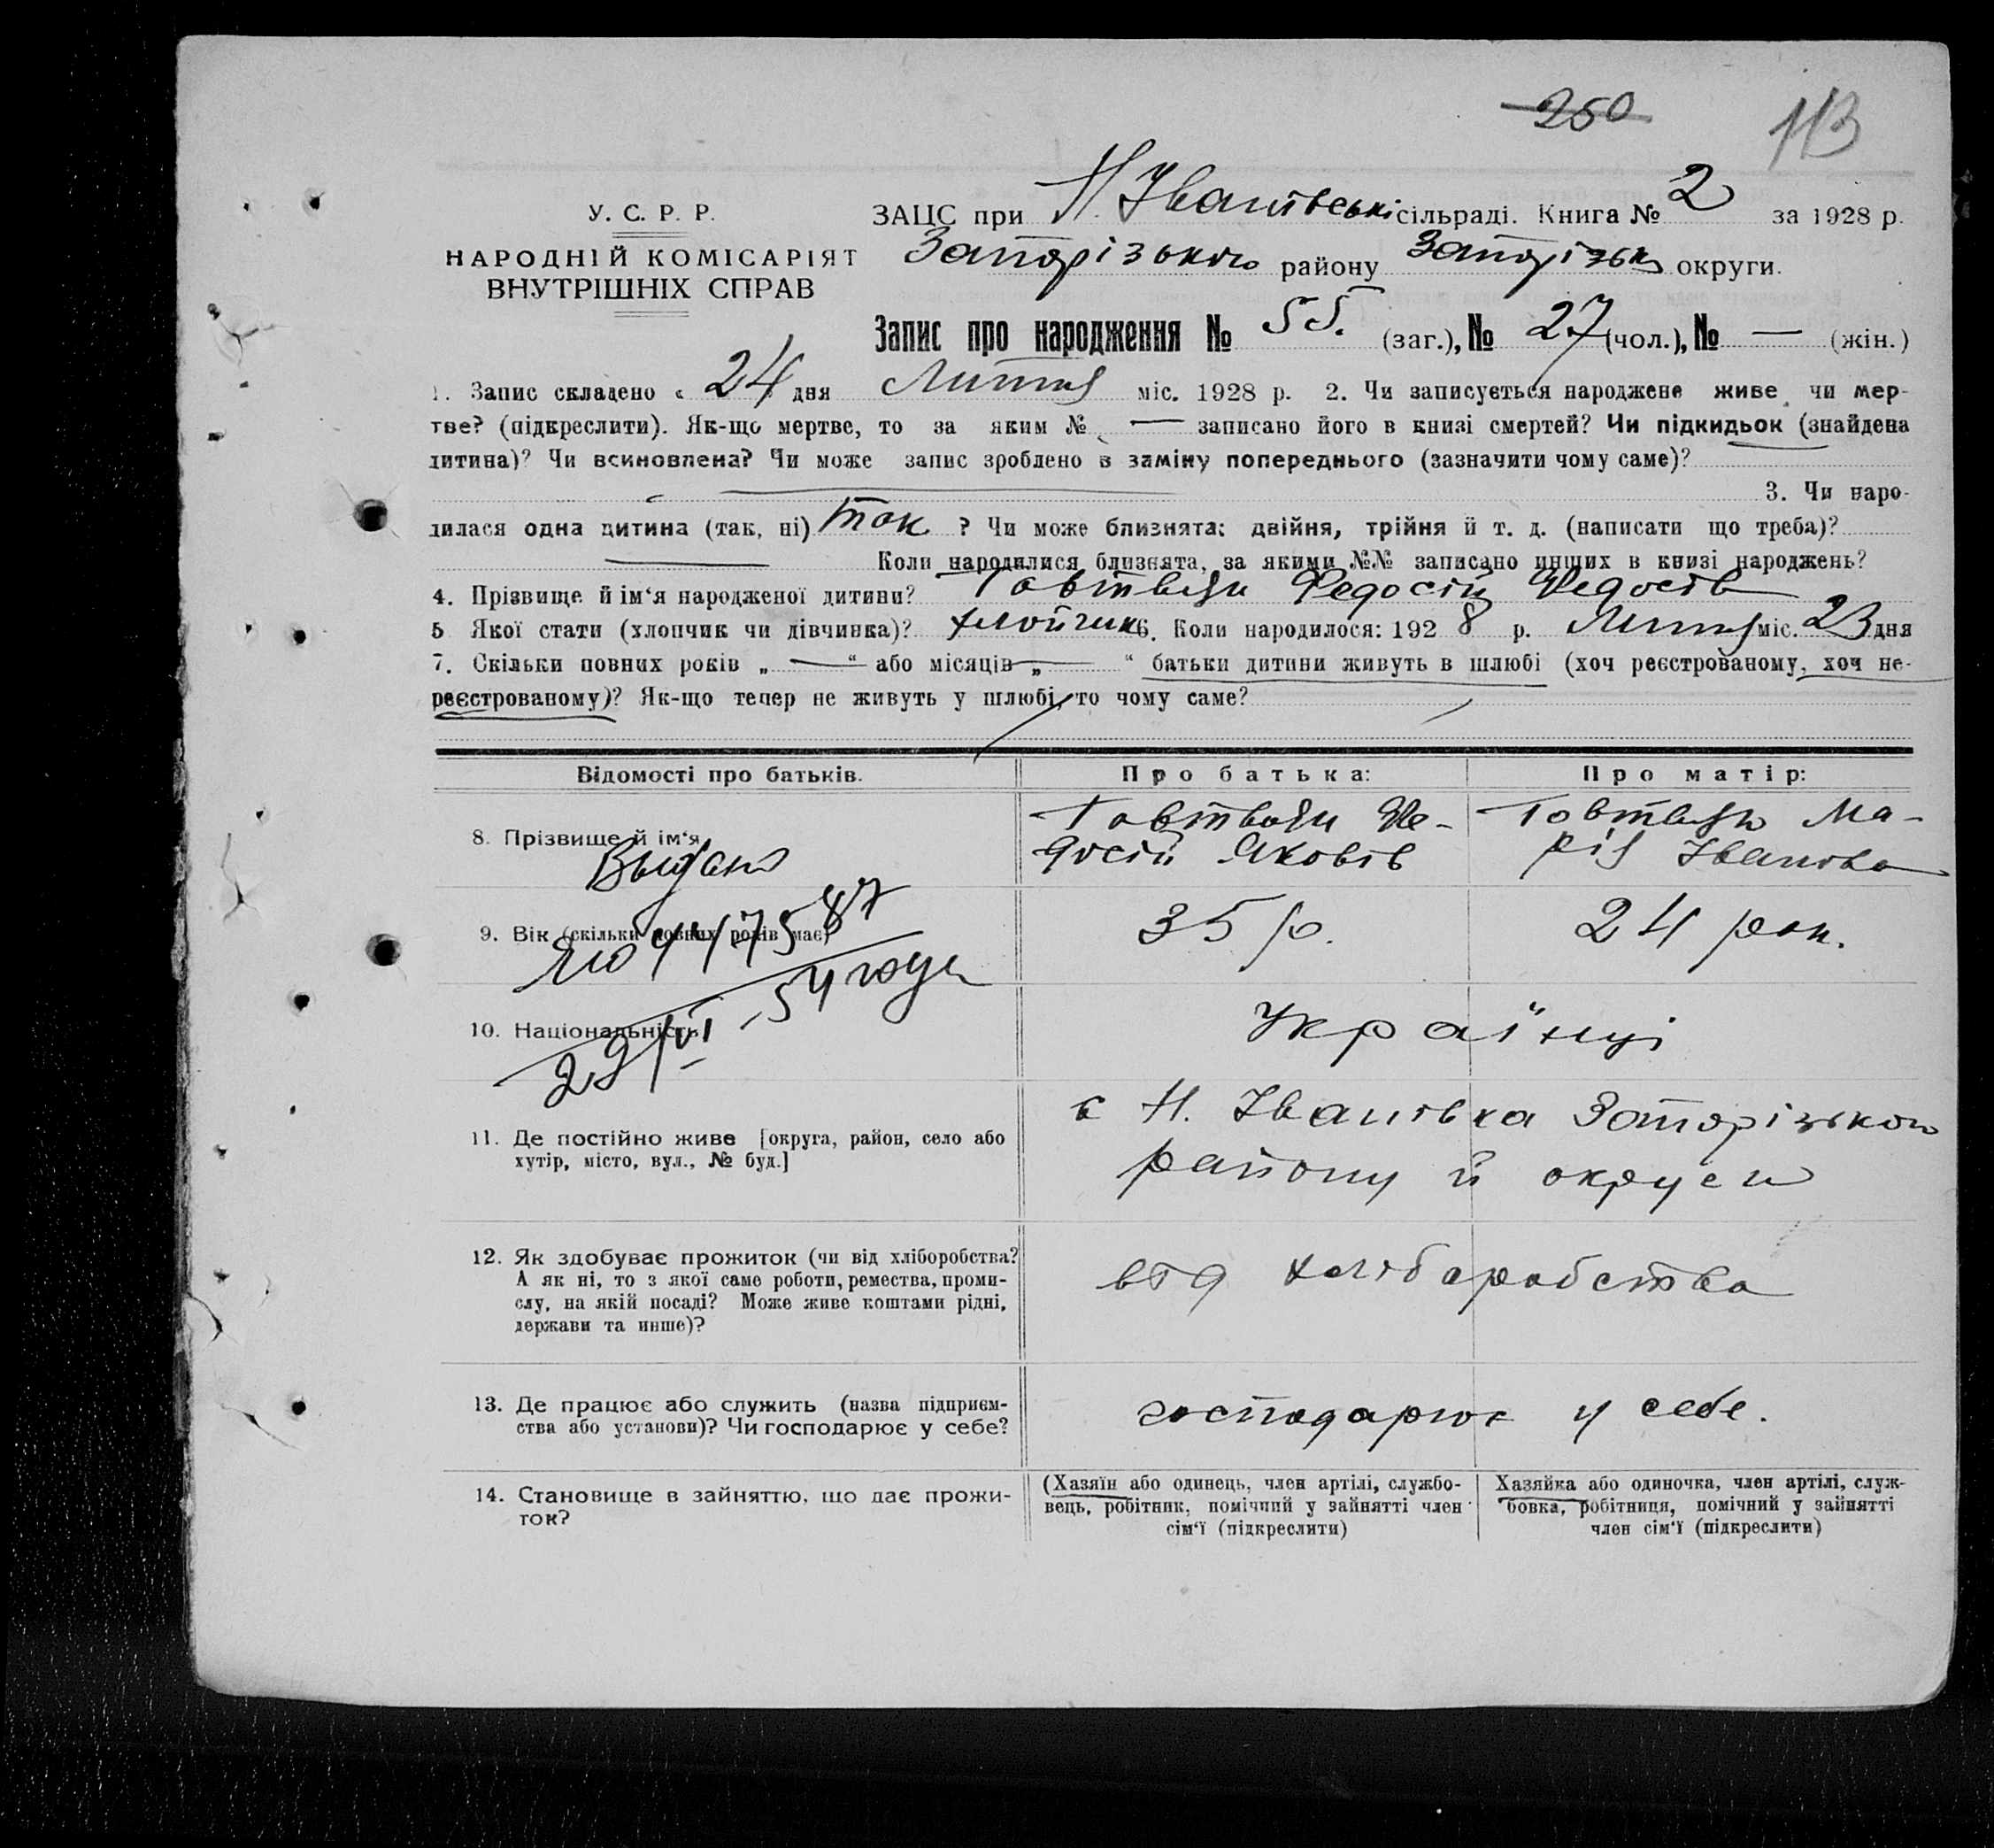 250
113
У. С. Р. Р.
НАРОДНІЙ КОМІСАРІЯТ
ВНУТРІШНІХ СПРАВ
ЗАЦС при Н. Іванівські сільраді. Книга № 2 за 1928 р.
Запорізького району Запорізьк округи.
Запис про народження № 55. (заг.), № 27 (чол.), № — (жін.)
1. Запис складено „ 24 дня Лютня міс. 1928 р. 2. Чи записується народжене живе чи мер-
тве? (підкреслити). Як-що мертве, то за яким № — записано його в книзі смертей? Чи підкидьок (знайдена
дитина)? Чи всиновлена? Чи може запис зроблено в заміну попереднього (зазначити чому саме)?
3. Чи наро-
дилася одна дитина (так, ні) так ? Чи може близнята: двійня, трійня й т. д. (написати що треба)?
— Коли народилися близнята, за якими №№ записано инших в книзі народжень?
4. Прізвище й ім‘я народженої дитини? Федосій Федосів
5 Якої стати (хлопчик чи дівчинка)? хлопчик 6. Коли народилося: 1928 р. Лютня міс. 23 дня
7. Скільки повних років „ — “ або місяців „ — “ батьки дитини живуть в шлюбі (хоч реєстрованому, хоч не-
реєстрованому)? Як-що тепер не живуть у шлюбі, то чому саме?
Відомості про батьків.
Про батька:
Про матір:
8. Прізвище й ім‘я
Фе-
досій Яковів
Ма-
рія Іванівна
Выдано
9. Вік (скільки повних років має)
35 р.
24 рок.
ЯЮ 4417587
29/VI - 54 года
10. Національність
Українці
11. Де постійно живе [округа, район, село або
хутір, місто, вул., № буд.]
с Н. Іванівка Запорізького
району й округи
12. Як здобуває прожиток (чи від хліборобства?
А як ні, то з якої саме роботи, ремества, проми-
слу, на якій посаді? Може живе коштами рідні,
держави та инше)?
від хліборобства
13. Де працює або служить (назва підприєм-
ства або установи)? Чи господарює у себе?
господарює у себе.
14. Становище в зайняттю, що дає прожи-
ток?
(Хазяїн або одинець, член артілі, службо-
вець, робітник, помічний у зайнятті член
сім‘ї (підкреслити)
Хазяйка або одиночка, член артілі, служ-
бовка, робітниця, помічний у зайнятті
член сім‘ї (підкреслити)